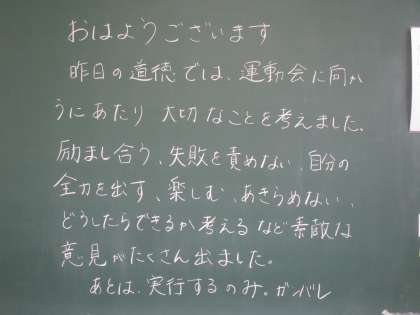 おはようございます
昨日の道徳では、運動会に向か
うにあたり 大切なことを考えました。
励まし合う、失敗を責めない、自分の
全力を出す、楽しむ、あきらめない、
どうしたらできるか考えるなど素敵な
意見がたくさん出ました。
あとは、実行するのみ。ガンバレ